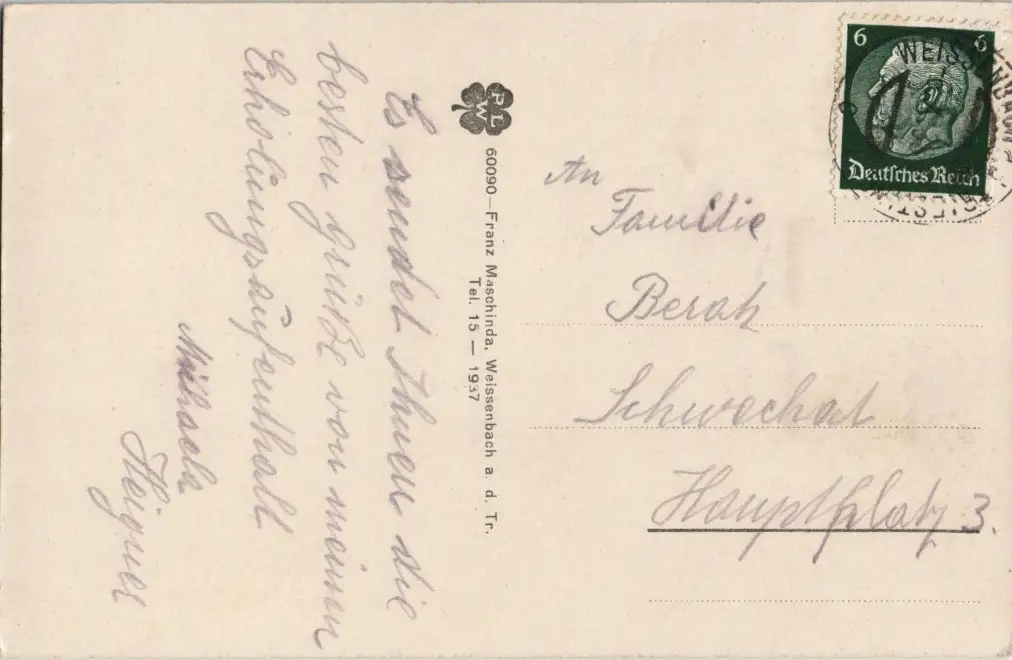 Es sendet Ihnen die
besten grüße von meinen
Erholungsaufenthalt
PLW
60090 — Franz Maschinda, Weissenbach a. d. Tr.
Tel. 15 — 1937
6 6
Deutsches Reich
WEISSENBACH
An
Familie
Schwechat
Hauptplatz 3.